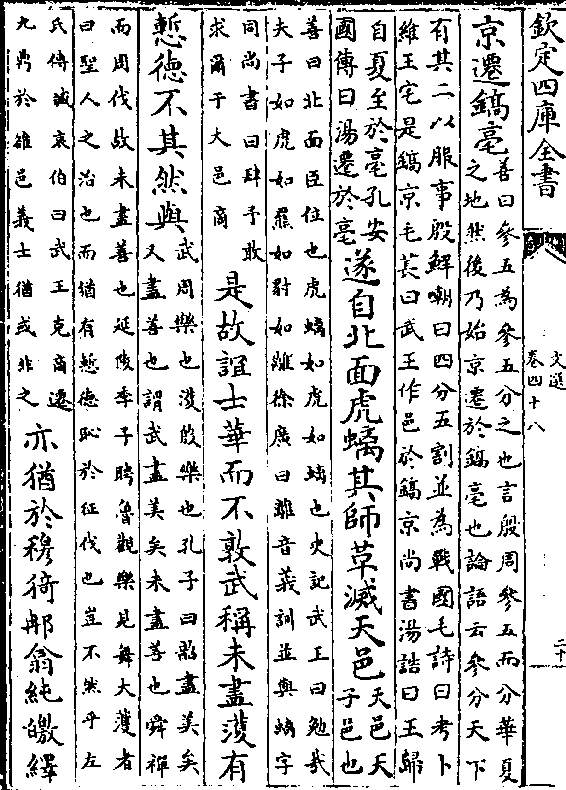 欽定四庫全書
文選
卷四十八
二十
京遷鎬亳
善曰參五為參五分之也言殷周參五而分華夏
之地然後乃始京遷於鎬亳也論語云參分天下
有其二以服事殷解嘲曰四分五割並為戰國毛詩曰考卜
維王宅是鎬京毛萇曰武王作邑於鎬京尚書湯誥曰王歸
自夏至於亳孔安
國傳曰湯遷於亳
遂自北面虎螭其師革滅天邑
天邑天
子邑也
善曰北面臣位也虎螭如虎如螭也史記武王曰勉哉
夫子如虎如羆如豺如離徐廣曰離音義訓並與螭字
同尚書曰肆予敢
求爾于大邑商
是故誼士華而不敦武稱未盡濩有
慙德不其然與
武周樂也濩殷樂也孔子曰韶盡美矣
又盡善也謂武盡美矣未盡善也舜禪
而周伐故未盡善也延陵季子聘魯觀樂見舞大濩者
曰聖人之治也而猶有慙德恥於征伐也豈不然乎左
氏傳臧哀伯曰武王克商遷
九鼎於雒邑義士猶或非之
亦猶於穆猗那翕純皦繹